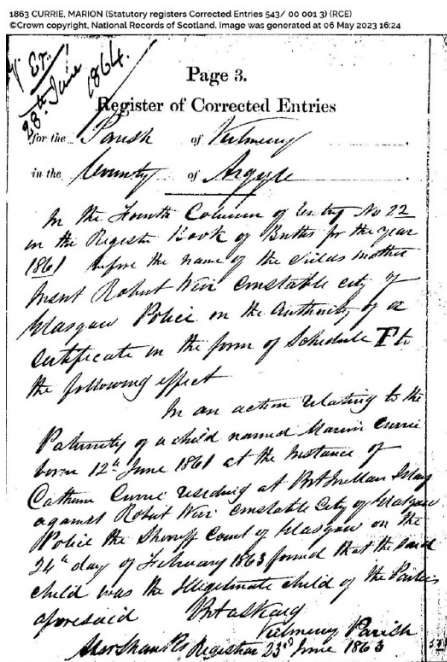 1863 CURRIE, MARION (Statutory registers Corrected Entries 543/ 00 001 3) (RCE)
©Crown copyright, National Records of Scotland. Image was generated at 06 May 2023 16:24
28th June 1864.
Page 3.
Register of Corrected Entries
for the Parish of Kilmeny
in the County of Argyle
In the Fourth Column of Entry No 22
in the Register Book of Births for the year
1861 before the name of the Childs mother
Insert Robert Weir Constable City of
Glasgow Police on the Authority of a
Certificate in the form of Schedule F to
the following effect
In an action relating to the
Paternity of a child named Marion Currie
born 12th June 1861 at the Instance of
Currie residing at Port Islay
against Robert Weir Constable City of Glasgow
Police the Sheriff Court of Glasgow on the
24th day of February 1863 found that the said
child was the Illegitimate child of the Parties
aforesaid
Kilmeny Parish
Registrar 23d June 1863